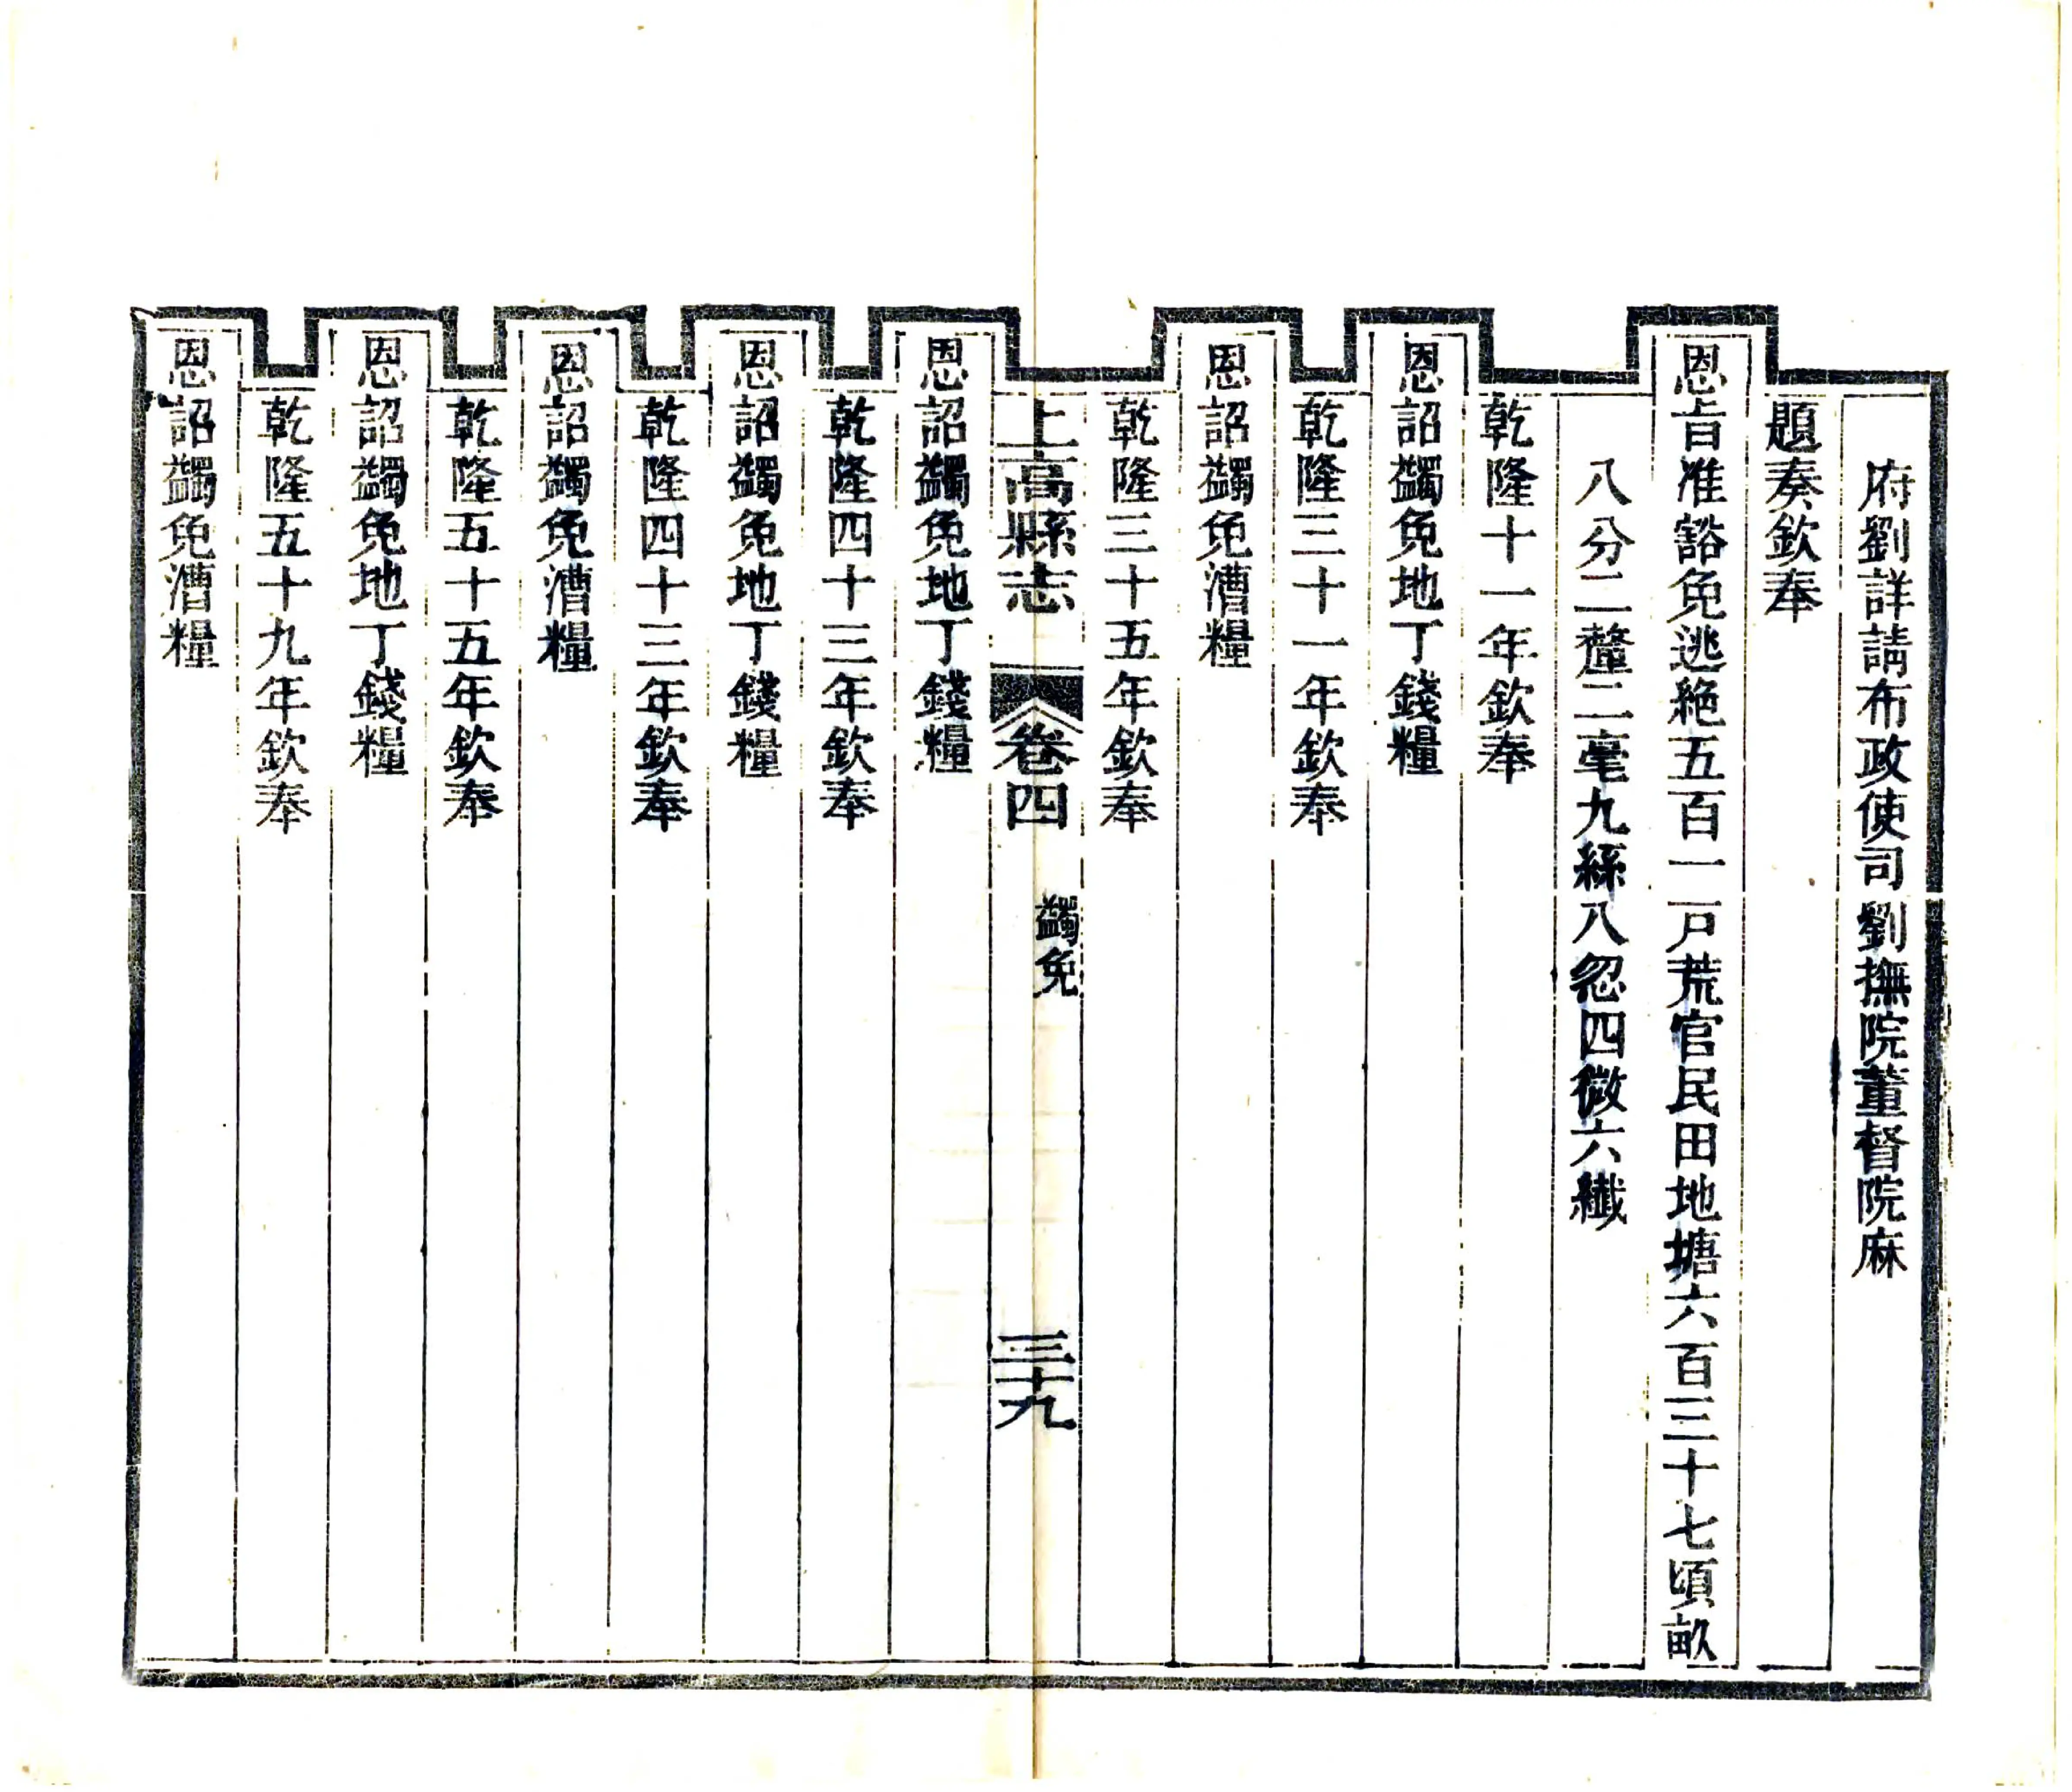 府劉詳請布政使司劉撫院董督院麻
題奏欽奉
恩旨准豁免逃絕五百一戸荒官民田地塘六百三十七頃畝
八分二釐二毫九絲八忽四微六纖
乾隆十一年欽奉
恩詔蠲免地丁錢糧
乾隆三十一年欽奉
恩詔蠲免漕糧
乾隆三十五年欽奉
上高縣志
卷四
蠲免
三十九
恩詔蠲免地丁錢糧
乾隆四十三年欽奉
恩詔蠲免地丁錢糧
乾隆四十三年欽奉
恩詔蠲免漕糧
乾隆五十五年欽奉
恩詔蠲免地丁錢糧
乾隆五十九年欽奉
恩詔蠲免漕糧